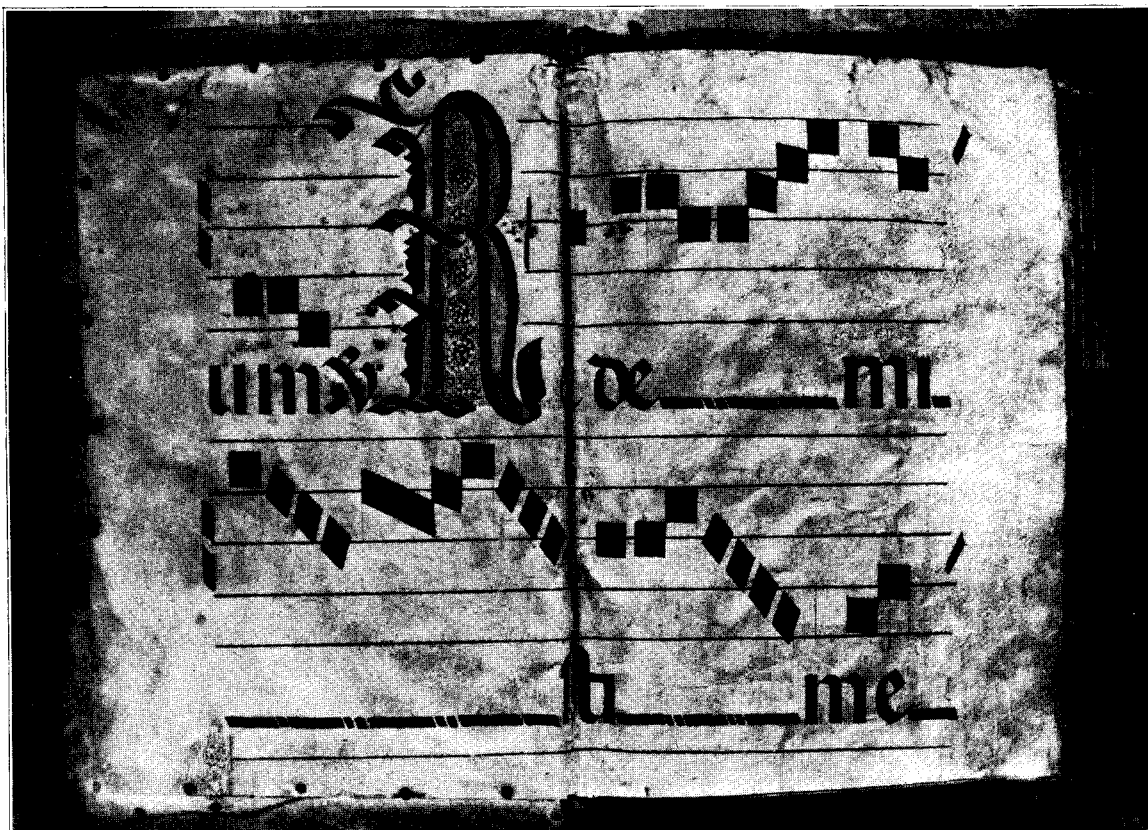 um ℣ R de mi
ſti me